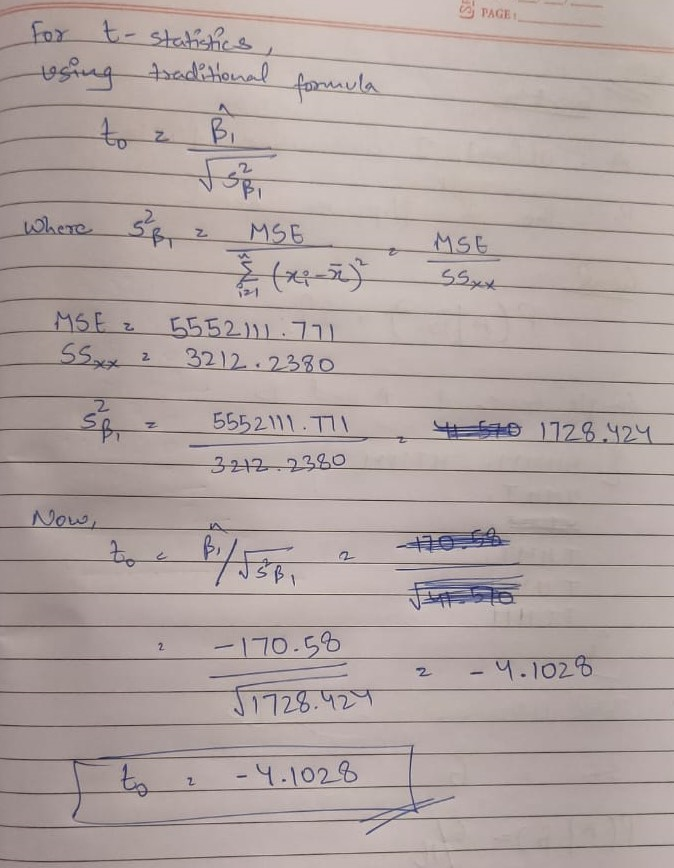 PAGE:
For t-statistics,
using traditional formula
t₀ = β̂₁ / √S²β₁
Where S²β₁ = MSE / Σⁿᵢ₌₁ (xᵢ - x̄)² = MSE / SSxx
MSE = 5552111.771
SSxx = 3212.2380
S²β₁ = 5552111.771 / 3212.2380 = 41.570 1728.424
Now,
t₀ = β̂₁ / √S²β₁ = -170.58 / √41.570
= -170.58 / √1728.424 = -4.1028
t₀ = -4.1028